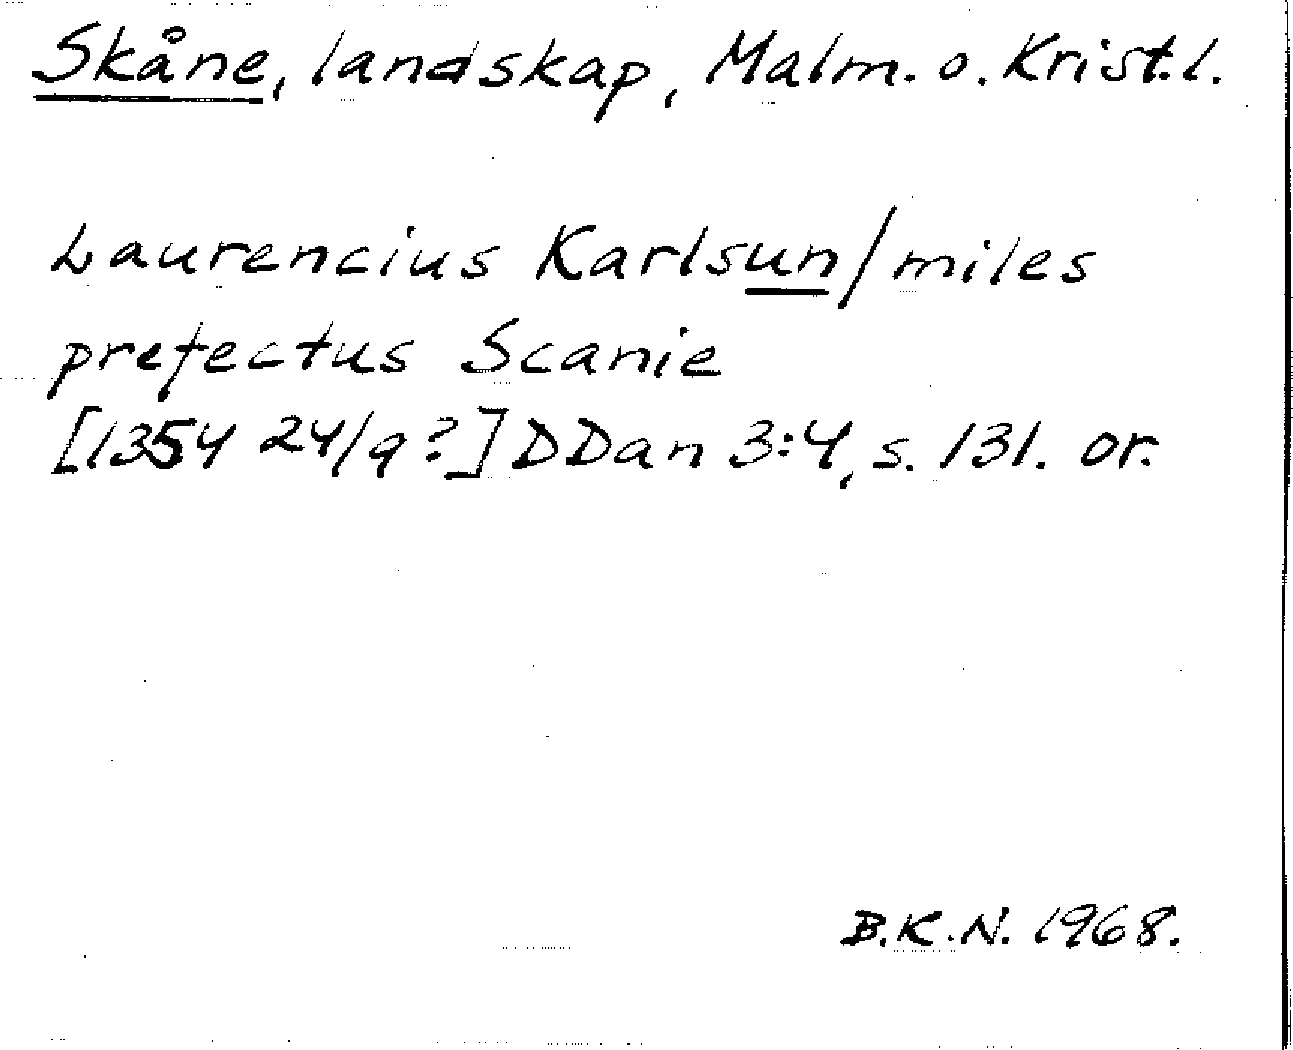 Skåne, landskap, Malm. o. Krist.l.
Laurencius Karlsun/miles
prefectus Scanie
[1354 24/9?] DDan 3:4, s. 131. or.
B.K.N. 1968.